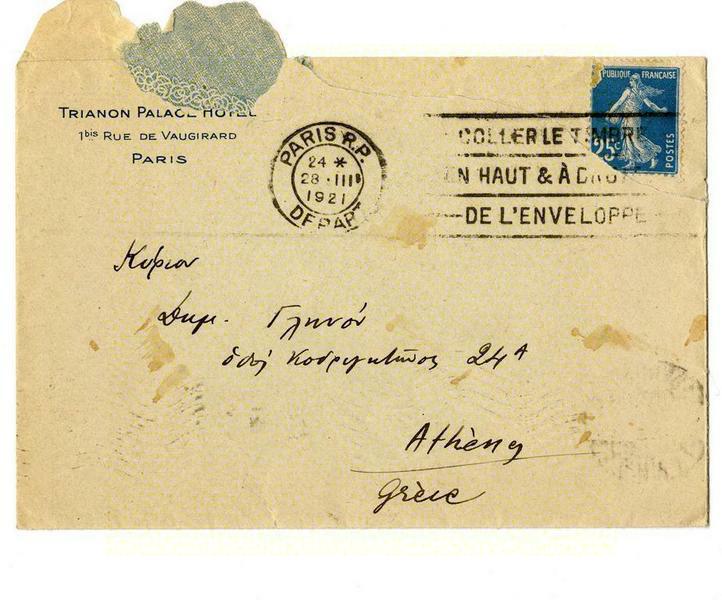 TRIANON PALACE HOTEL
1bis RUE DE VAUGIRARD
PARIS
PARIS R.P.
24 *
28 · III
1921
DEPART
COLLER LE TIMBRE
EN HAUT & À DROITE
DE L'ENVELOPPE
RÉPUBLIQUE FRANÇAISE
25c
POSTES
Κύριον
Δημ. Γληνόν
ὁδός Κοδριγκτῶνος 24A
Athènes
Grèce